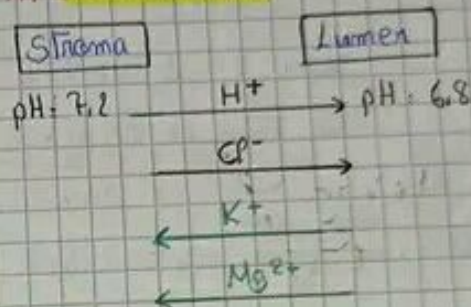 Stroma Lumen
pH: 7,2 H+ pH: 6,8
Cl-
K+
Mg2+